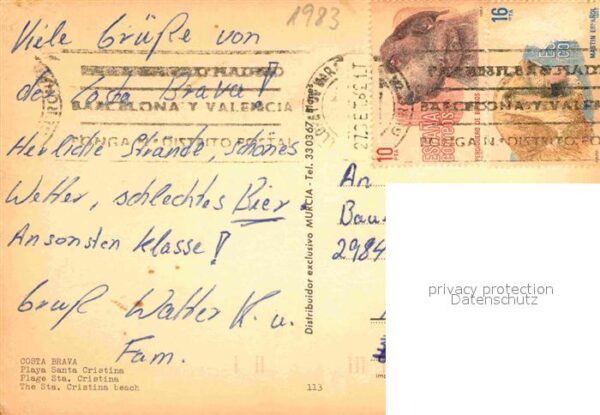 1983
Viele Grüße von
der Costa Brava!
Herrliche Strände, schönes
Wetter, schlechtes Bier
Ansonsten Klasse!
Gruß Walter K. u.
Fam.
BARCELONA Y VALENCIA
PONGA N.° DISTRITO POSTAL
10
PTA
ESPAÑA
CORREOS
16
PTA
BARCELONA Y VALENCIA
PONGA N.° DISTRITO
An
Bau
2984
Distribuidor exclusivo MURCIA - Tel. 330367
COSTA BRAVA
Playa Santa Cristina
Plage Sta. Cristina
The Sta. Cristina beach
113
privacy protection
Datenschutz